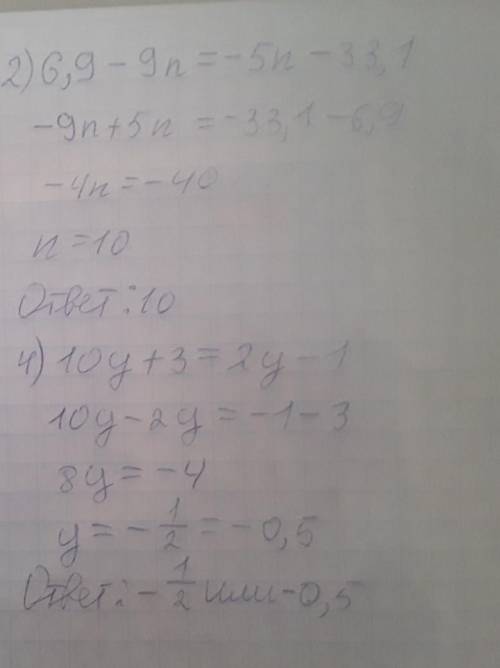 2) 6,9 - 9n = -5n - 33,1
-9n + 5n = -33,1 - 6,9
-4n = -40
n = 10
Ответ: 10
4) 10y + 3 = 2y - 1
10y - 2y = -1 - 3
8y = -4
y = -1/2 = -0,5
Ответ: -1/2 или -0,5